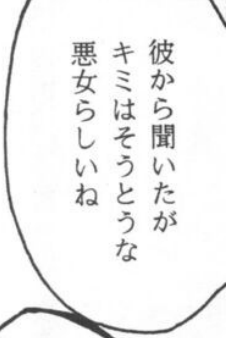 彼から聞いたが
キミはそうとうな
悪女らしいね